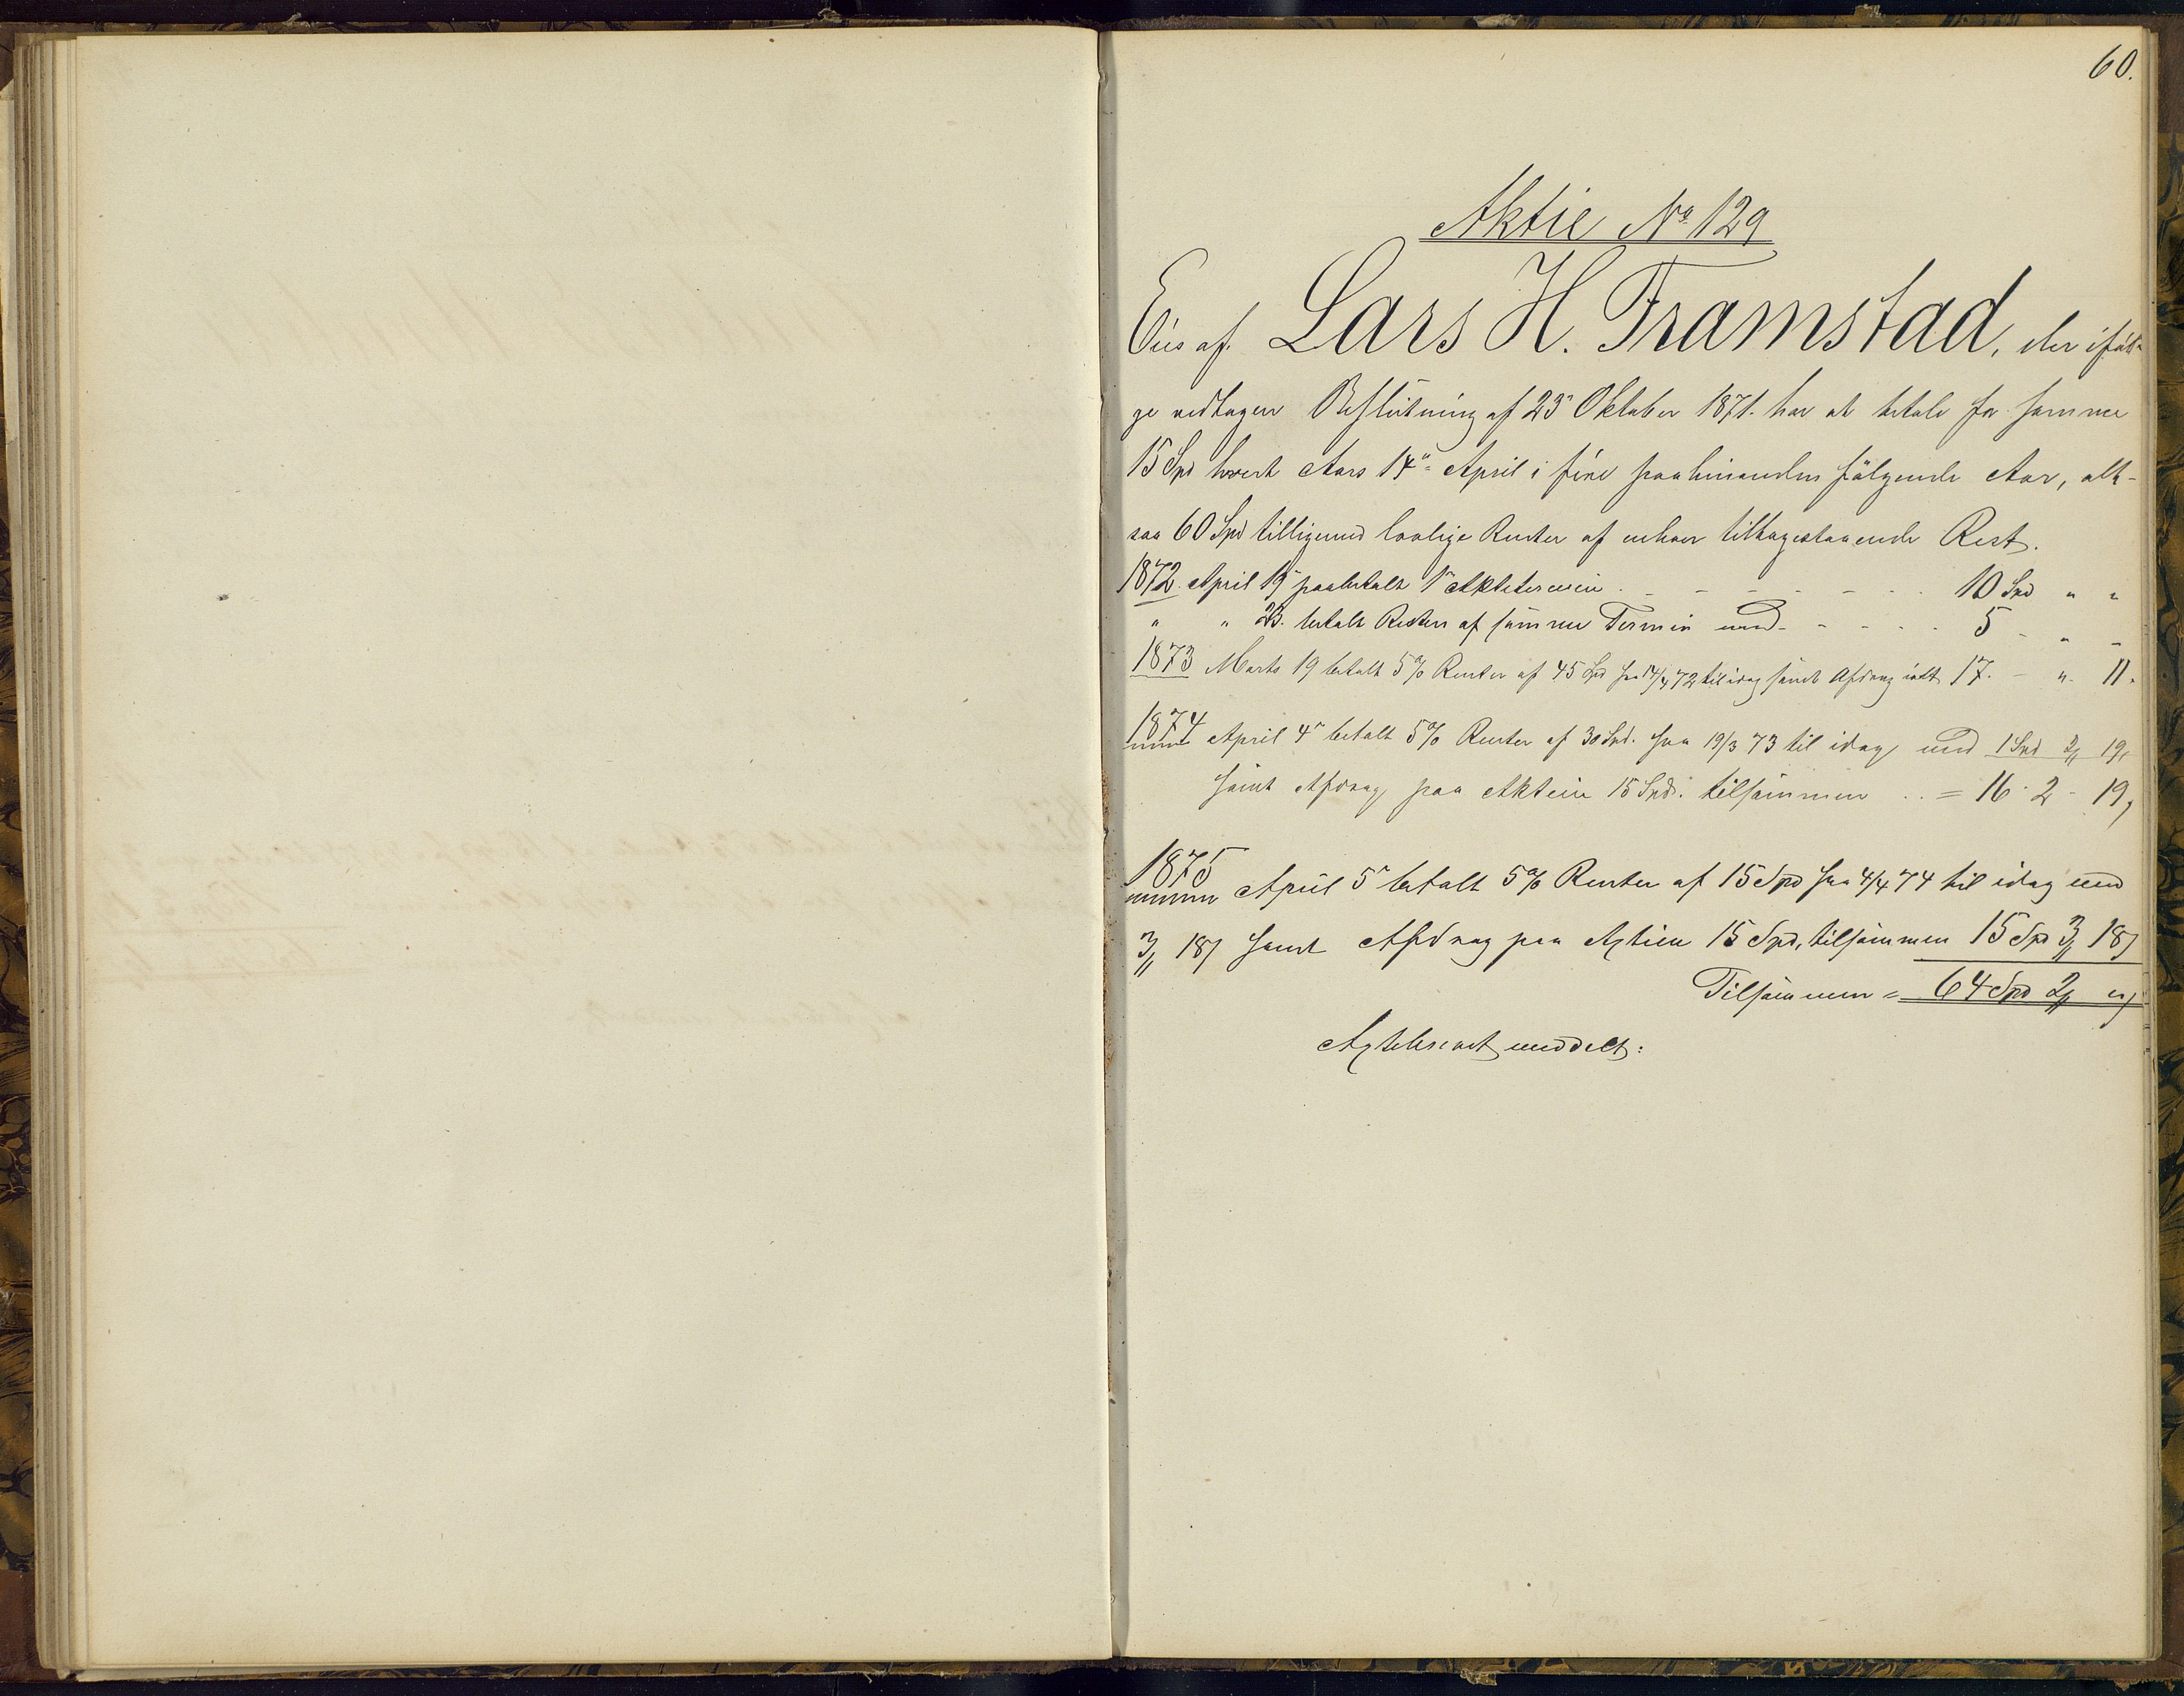 60.
Aktie No 129
Eies af Lars H. Framstad, der iföl-
ge vedtagen Beslutning af 25de Oktober 1871. har at betale for samme
15 Spd hvert Aars 14de April i fire paahinanden fölgende Aar, alt-
saa 60 Spd tilligemed lovlige Renter af enhver tilbagestaaende Rest.
1872 April 19 paabetalt 1ste Aktietermin . - - - - - . . 10 Spd " "
" " 23. betalt Resten af samme Termin med - - - . . 5 - " -
1873 Marts 19 betalt 5% Renter af 45 Spd fra 14/4 72 til idag samt Afdrag ialt 17. - " 11.
1874 April 4de betalt 5% Renter af 30 Spd. fra 19/3 73 til idag med 1 Spd 2 19
samt Afdrag paa Aktien 15 Spd. tilsammen . . = 16 - 2 - 19
1875 April 5te betalt 5% Renter af 15 Spd fra 4/4 74 til idag med
3 18 samt Afdrag paa Aktien 15 Spd, tilsammen 15 Spd 3 18
Tilsammen = 64 Spd 2 "
Aktiebrevet meddelt: